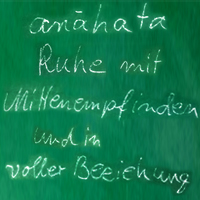 anāhata
Ruhe mit
Mittenempfinden
und in
voller Beziehung